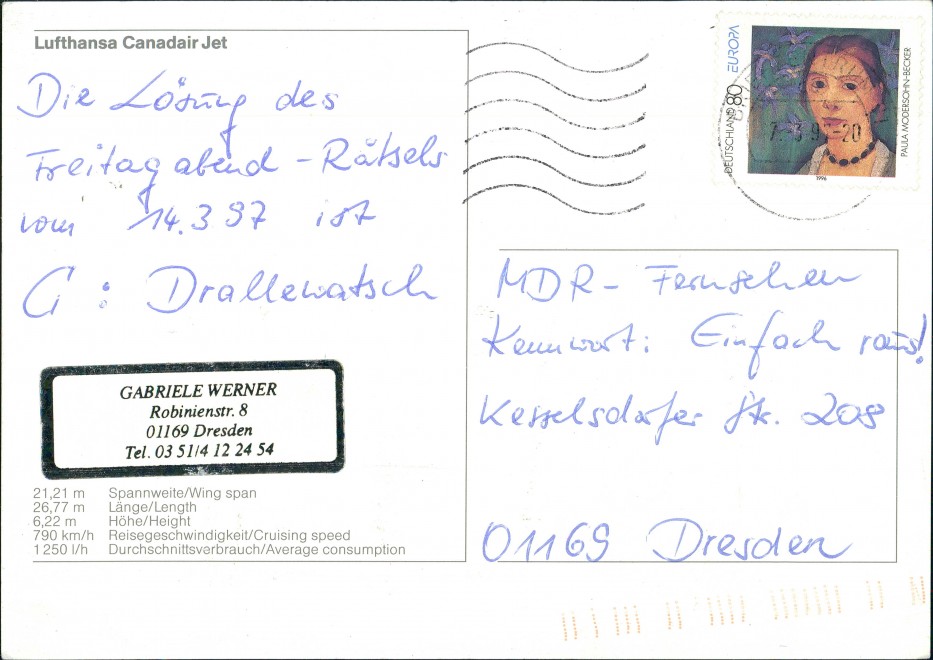 Lufthansa Canadair Jet
Die Lösung des
Freitagabend-Rätsels
vom 14.3.97 ist
G: Drallewatsch
GABRIELE WERNER
Robinienstr. 8
01169 Dresden
Tel. 03 51/4 12 24 54
21,21 m Spannweite/Wing span
26,77 m Länge/Length
6,22 m Höhe/Height
790 km/h Reisegeschwindigkeit/Cruising speed
1 250 l/h Durchschnittsverbrauch/Average consumption
DEUTSCHLAND 80 EUROPA
PAULA MODERSOHN-BECKER
1996
20
MDR - Fernsehen
Kennwort: Einfach raus!
Kesselsdorfer Str. 208
01169 Dresden